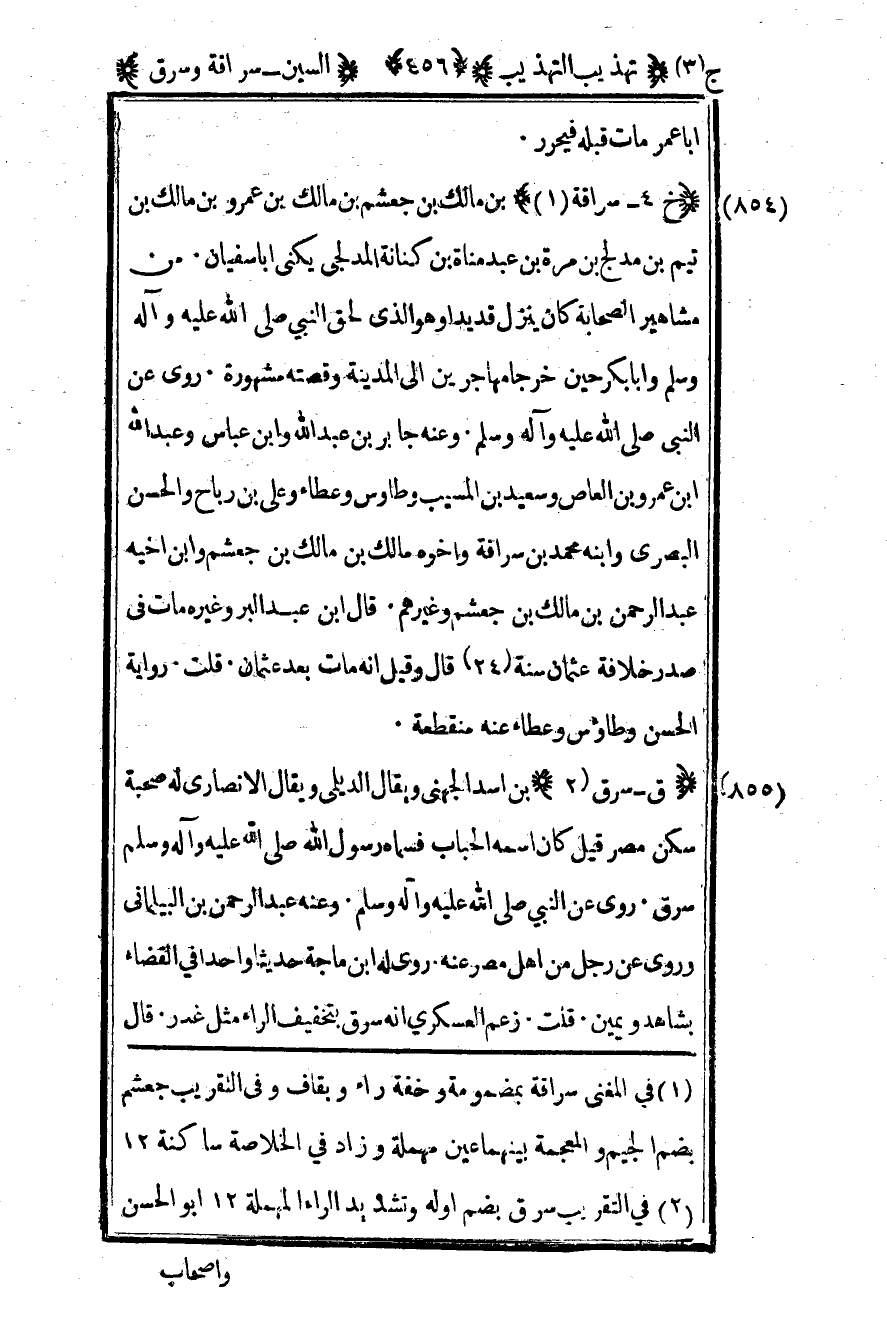 ج(٣) ﴿ تهذيب التهذيب ﴾ ﴿٤٥٦﴾ ﴿ السين ـ سراقة وسرق ﴾
ابا عمر مات قبله فيحرر ٠
(٨٥٤) ﴿ خ ٤ ـ سراقة (١) ﴾ بن مالك بن جعشم بن مالك بن عمرو بن مالك بن
تيم بن مدلج بن مرة بن عبد مناة بن كنانة المدلجى يكنى ابا سفيان ٠ من
مشاهير الصحابة كان ينزل قديدا وهو الذى لحق النبي صلى الله عليه و آله
وسلم وابابكر حين خرجا مهاجرين الى المدينة وقصته مشهورة ٠ روى عن
النبى صلى الله عليه وآله وسلم ٠ وعنه جابر بن عبدالله وابن عباس وعبدالله
ابن عمرو بن العاص وسعيد بن المسيب وطاوس وعطاء وعلى بن رباح والحسن
البصرى وابنه محمد بن سراقة واخوه مالك بن مالك بن جعشم وابن اخيه
عبدالرحمن بن مالك بن جعشم وغيرهم ٠ قال ابن عبد البر وغيره مات فى
صدر خلافة عثمان سنة (٢٤) قال وقيل انه مات بعد عثمان ٠ قلت ٠ رواية
الحسن وطاوس وعطاء عنه منقطعة ٠
(٨٥٥) ﴿ ق ـ سرق (٢ ﴾ بن اسد الجهنى ويقال الديلى ويقال الانصارى له صحبة
سكن مصر قيل كان اسمه الحباب فسماه رسول الله صلى الله عليه وآله وسلم
سرق ٠ روى عن النبي صلى الله عليه وآله وسلم ٠ وعنه عبدالرحمن بن البيلمانى
وروى عن رجل من اهل مصر عنه ٠ روى له ابن ماجة حديثا واحدا في القضاء
بشاهد و يمين ٠ قلت ٠ زعم العسكري انه سرق بتخفيف الراء مثل غدر ٠ قال
(١) في المغنى سراقة بمضمومة وخفة راء وبقاف و فى التقريب جعشم
بضم الجيم و المعجمة بينهما عين مهملة و زاد في الخلاصة ساكنة ١٢
(٢) في التقريب سرق بضم اوله وتشديد الراء المهملة ١٢ ابو الحسن
واصحاب